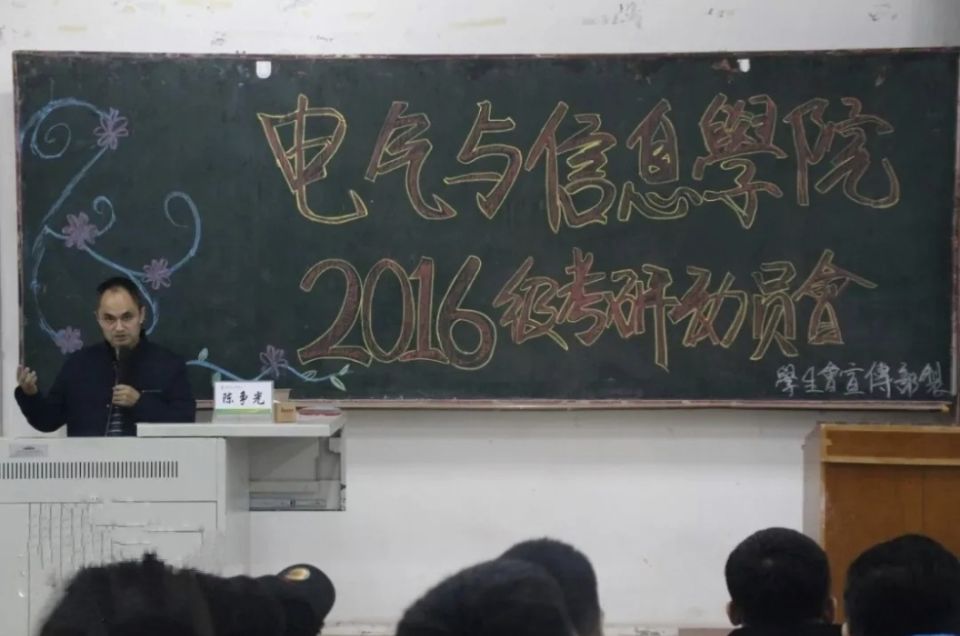 电气与信息學院
2016级考研动员會
學生會宣傳部製
陈争光